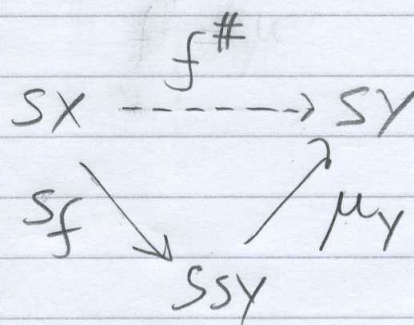 f#
SX SY
Sf μY
SSY